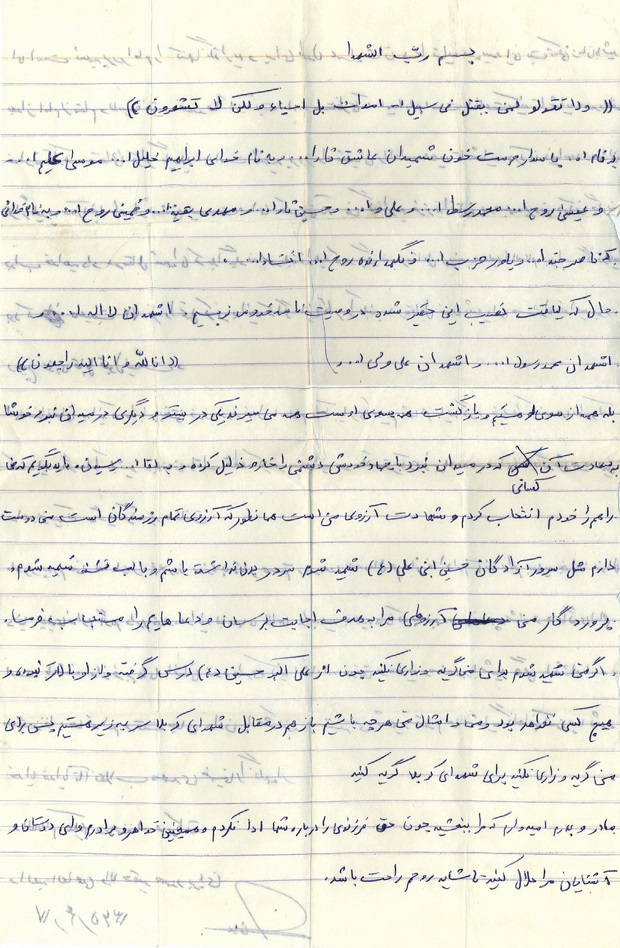 بسم رب الشهدا
(( ولا تقولو لمن یقتل فی سبیل ا... اموات بل احیاء ولکن لا تشعرون ))
بنام ا... پاسدار حرمت خون شهیدان عاشق ثارا... بنام خدای ابراهیم خلیل ا... موسی کلیم ا...
و عیسی روح ا... محمد رسول ا... و علی ولی ا... و حسین ثارا... و مهدی بقیة ا... و خمینی روح ا... و بنام خدای
ناصر جندا... و یاور حزب ا... و نگهدارنده روح ا...
حال که لیاقت نصیب این حقیر شده که وصیت نامه خود را بنویسم اشهد ان لا اله ا...
اشهد ان محمد رسول ا... و اشهد ان علی ولی ا... ((انا لله و انا الیه راجعون))
بله همه از سوی او هستیم و بازگشت همه بسوی اوست همه می میرند یکی در بستر و دیگری در میدان نبرد خوشا
به سعادت آن کسانی که در میدان نبرد با جهاد خودش دشمن را خار و ذلیل کرده و به لقاء ا... رسیدن باید بگویم که من
راهم را خودم انتخاب کردم و شهادت آرزوی من است همانطور که آرزوی تمام رزمندگان است من دوست
دارم مثل سرور آزادگان حسین ابن علی (ع) شهید شوم سر در بدن نداشته باشم و با لب تشنه شهید شوم
پروردگار من آرزوهای مرا به هدف اجابت برسان و دعاهایم را مستجاب فرما.
اگر من شهید شدم برای من گریه و زاری نکنید چون از علی اکبر حسین (ع) درس گرفته و از او بالاتر نبودم و
هیچ کس نخواهد بود و من و امثال من هر چه باشیم باز هم در مقابل شهدای کربلا سر به زیر هستیم پس برای
من گریه و زاری نکنید برای شهدای کربلا گریه کنید
مادر و پدرم امیدوارم که مرا ببخشید چون حق فرزندی را درباره شما ادا نکردم و همچنین خواهر و برادرم ولی دوستان و
آشنایان مرا حلال کنید تا شاید روحم راحت باشد.